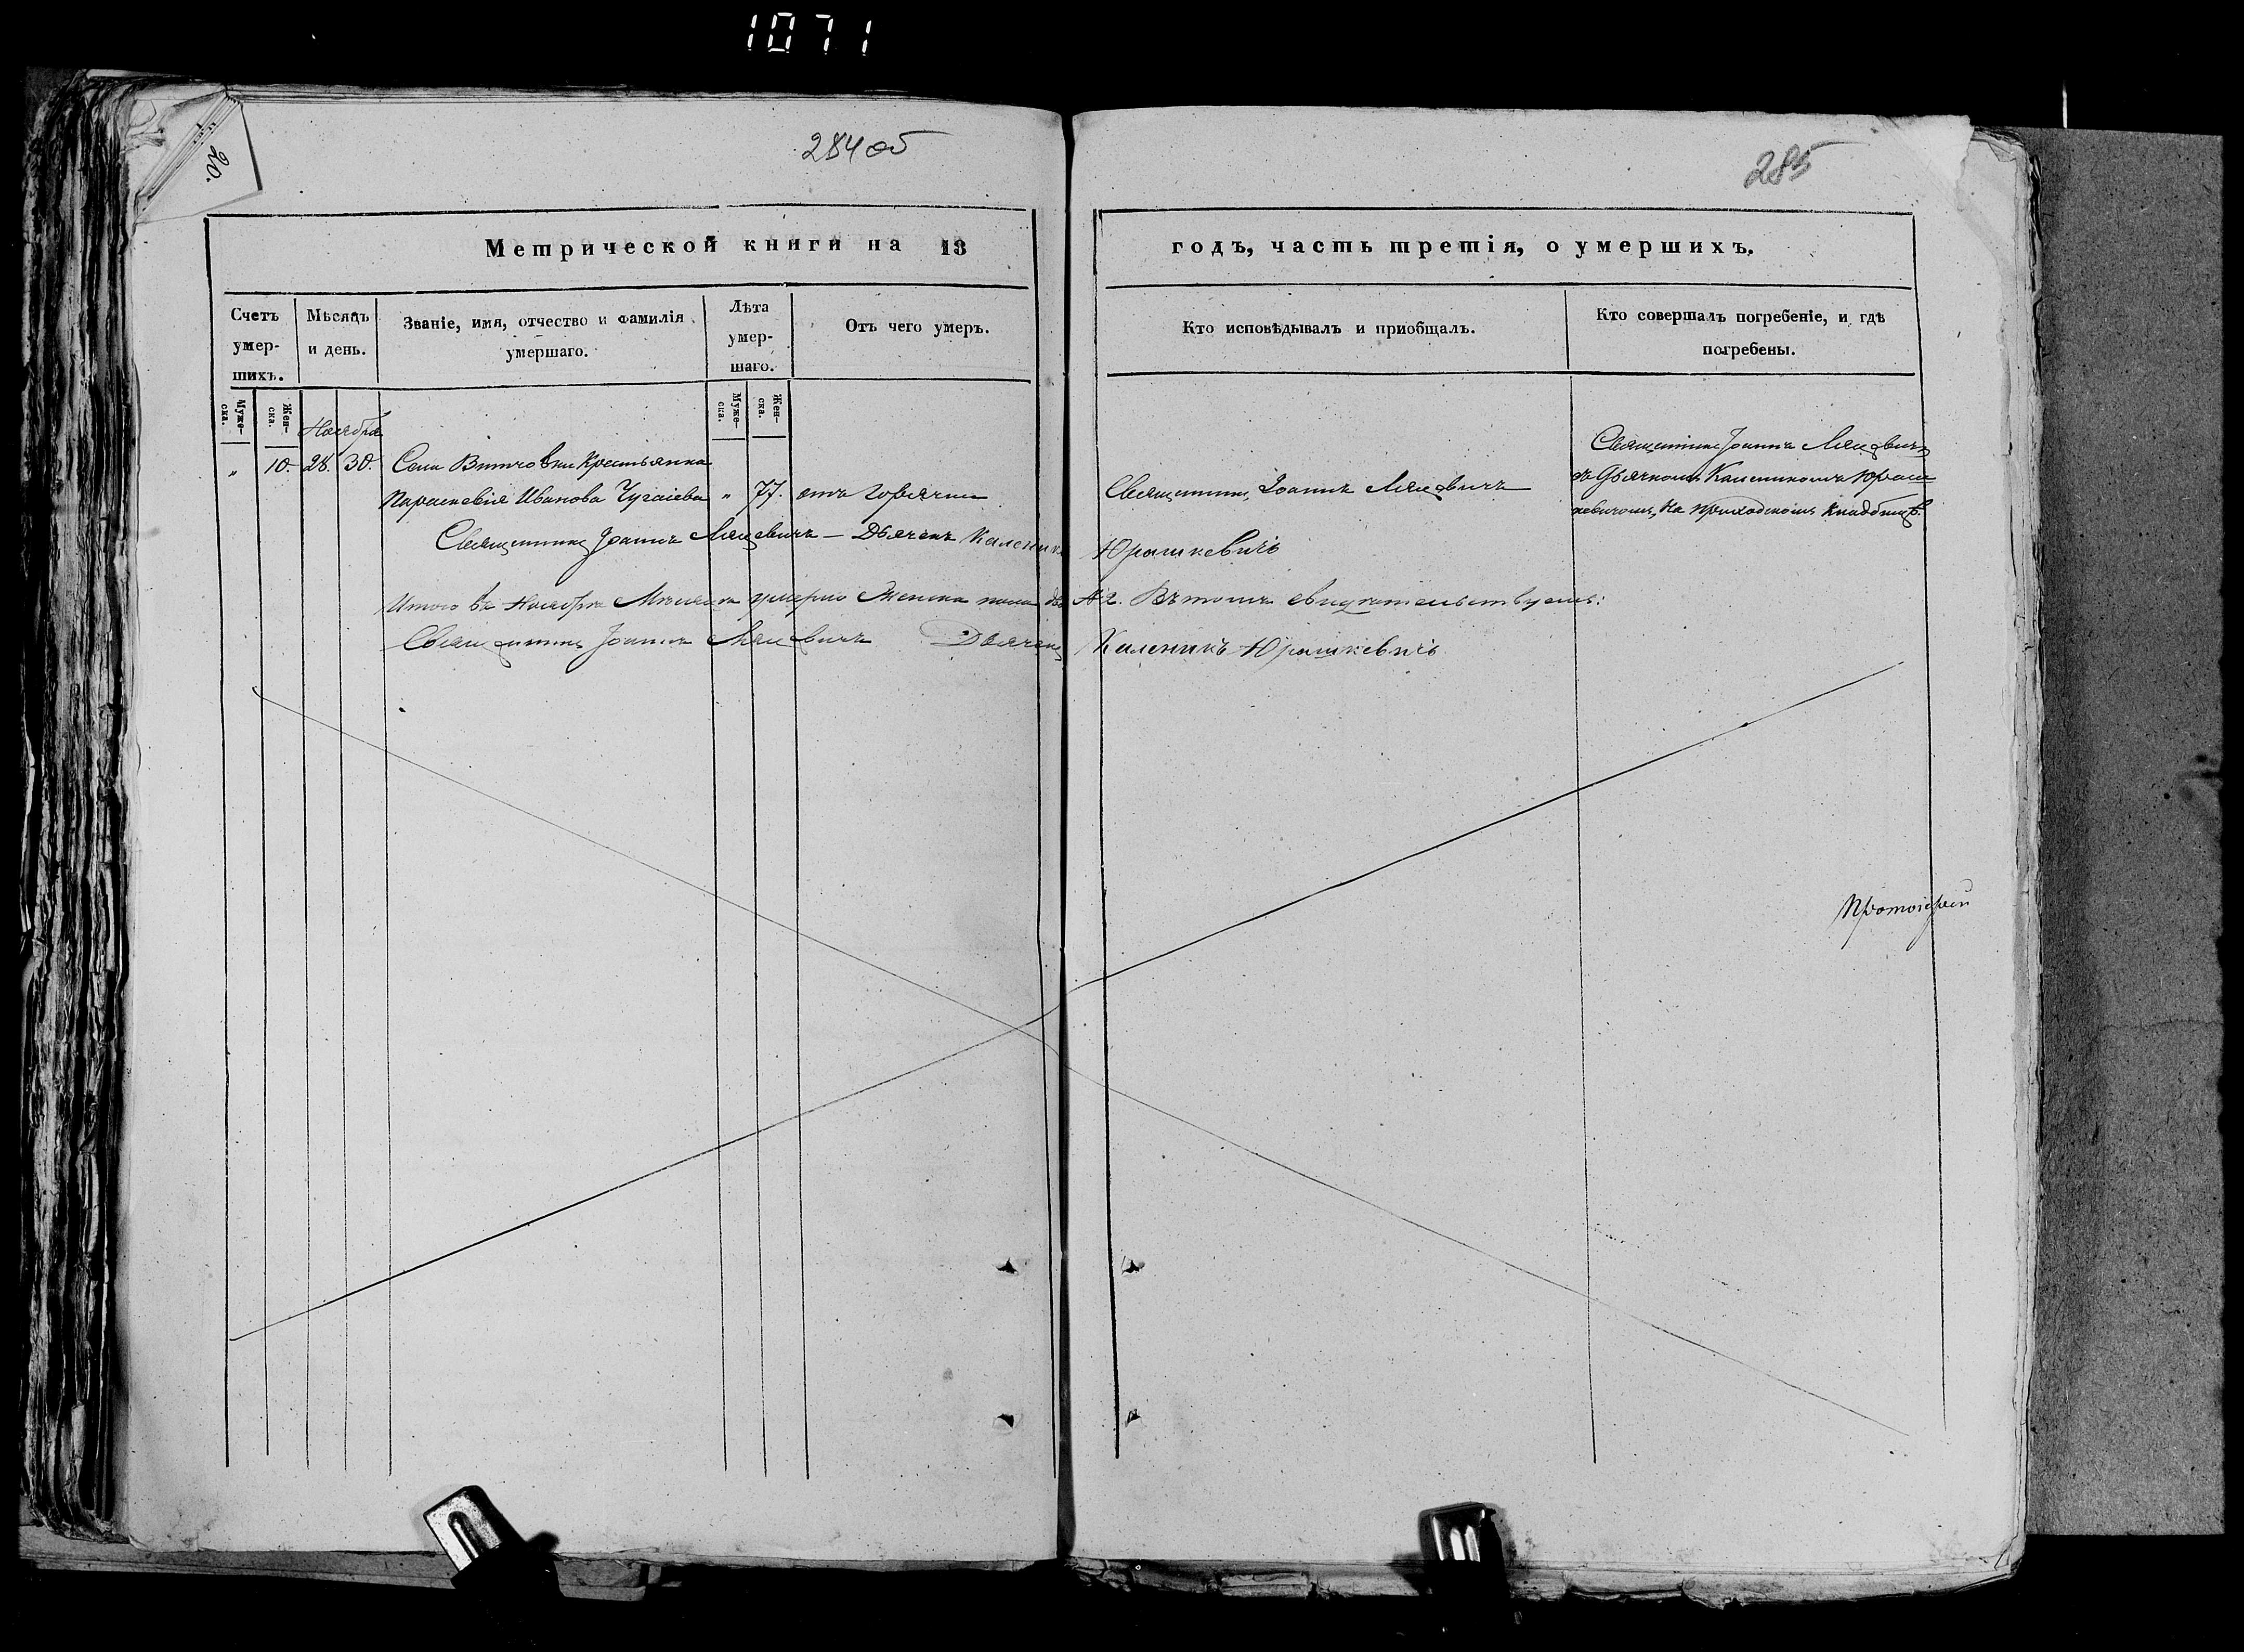 1071
20.
284об
285
Метрической книги на 18 годъ, часть третія, о умершихъ.
Счетъ умер-шихъ.
Мѣсяцъ и день.
Званіе, имя, отчество и фамилія умершаго.
Лѣта умер-шаго.
Отъ чего умеръ.
Кто исповѣдывалъ и приобщалъ.
Кто совершалъ погребеніе, и гдѣ погребены.
Муже-ска.
Жен-ска.
Муже-ска.
Жен-ска.
Ноября
" 10. 28. 30. Села Крестьянка
Параскевія Иванова Чугаіева " 77. отъ горячки
Священникъ Іоаннъ Мацевичъ
Священникъ Іоаннъ Мацевичъ
съ Дьячкомъ Каленикомъ Юраш
кевичомъ, на приходскомъ кладбищѣ.
Священникъ Іоаннъ Мацевичъ — Дьячекъ Каленикъ Юрашкевичъ
Итого въ Ноябрѣ Мѣсяцѣ умерло Женска пола двѣ 2. Въ томъ свидѣтельствуемъ:
Священникъ Іоаннъ Мацевичъ Дьячекъ Каленикъ Юрашкевичъ
Протоіерей